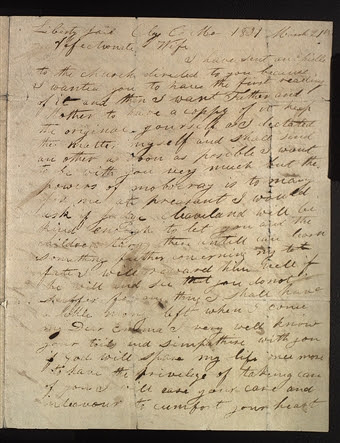 Liberty Jail Clay Co Mo 1839 March 21st
Affectionate Wife
I have sent an Epistle
to the church directed to you because
I wanted you to have the first reading
of it and then I want Father and
Mother to have a coppy of it keep
the original yourself as I dectated
the matter myself and shall send
an other as soon as posible I want
to be with you very much but the
powers of mobocray is to many
for me at preasant I would
ask if Judge Cleaveland will be
kind enough to let you and the
children tarry there untill can learn
something further concerning my lot
fate I will reward him well if
he will and see that you do not
suffer for any thing I shall have
a little mony left when I come
my Dear Emma I very well know
your toils and simpathise with you
if God will spare my life once more
to have the privelege of takeing care
of you I will ease your care and
indeavour to cumfort your heart